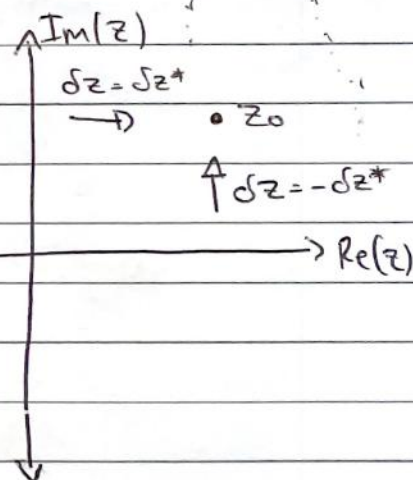 Im(z)
δz = δz*
z₀
δz = -δz*
Re(z)